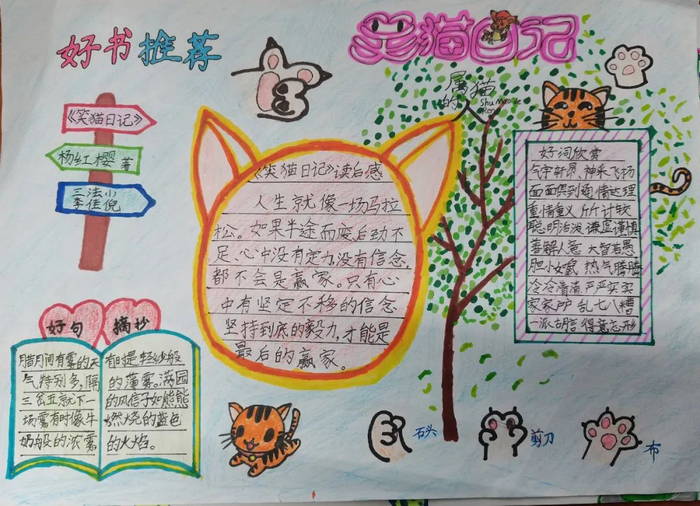 好书推荐
笑猫日记
《笑猫日记》
杨红樱 著
三法小
李佳倪
属猫
的人
《笑猫日记》读后感
人生就像一场马拉
松。如果半途而废后劲不
足、心中没有定力,没有信念,
都不会是赢家。只有心
中有坚定不移的信念
坚持到底的毅力,才能是
最后的赢家。
好词欣赏
气宇轩昂 神采飞扬
面面俱到 通情达理
重情重义 斤斤计较
聪明活泼 谦虚谨慎
善解人意 大智若愚
胆小如鼠 热气腾腾
冷冷清清 严严实实
家家户户 乱七八糟
一派胡言 得意忘形
好句 摘抄
腊月间有雾的天
气特别多,隔
三岔五就下一
场雾有时像牛
奶般的浓雾
有时是轻纱般
的薄雾。满园
的风信子如熊熊
燃烧的蓝色
的火焰。
石头
剪刀
布